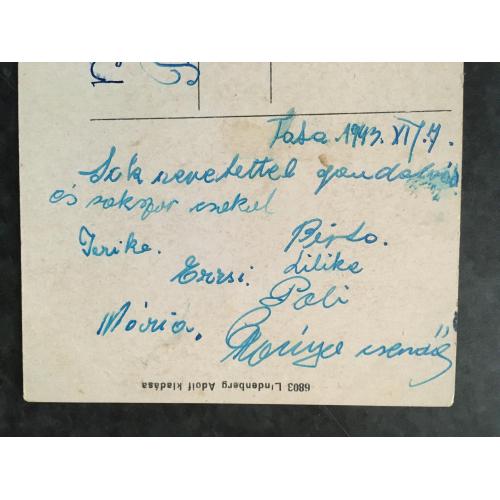 Tata 1943. XI/7.
Sok szeretettel gondolva
és sokszor csókol
Terike. Berto.
Erzsi. Lilike
Pali
Mária,
6803 Lindenberg Adolf kiadása